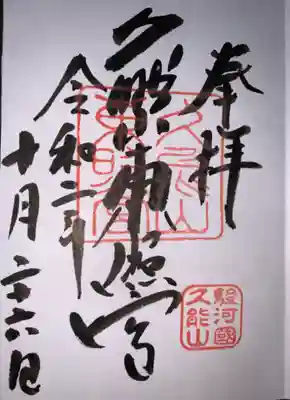 奉拝
久能山東照宮
令和二年
十月二十六日
久能山
東照宮
駿河國
久能山